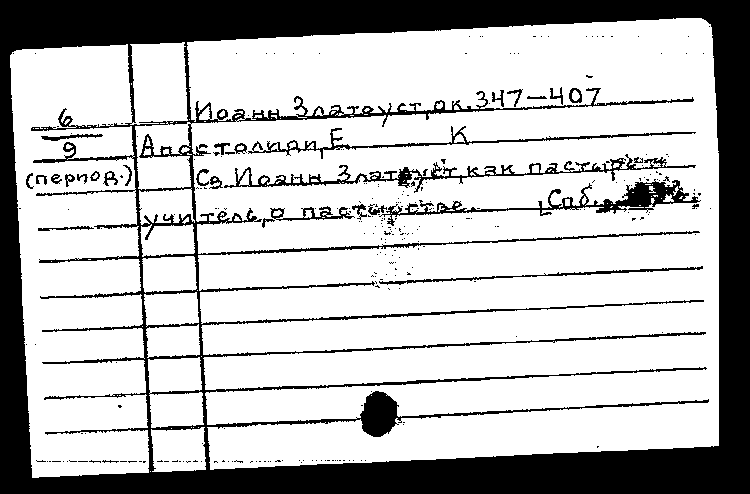 6 Иоанн Златоуст, ок. 347—407
9 Апостолиди, Е К
(период.) Св. Иоанн Златоуст, как пастырь и
учитель, о пастырстве. [Спб.,